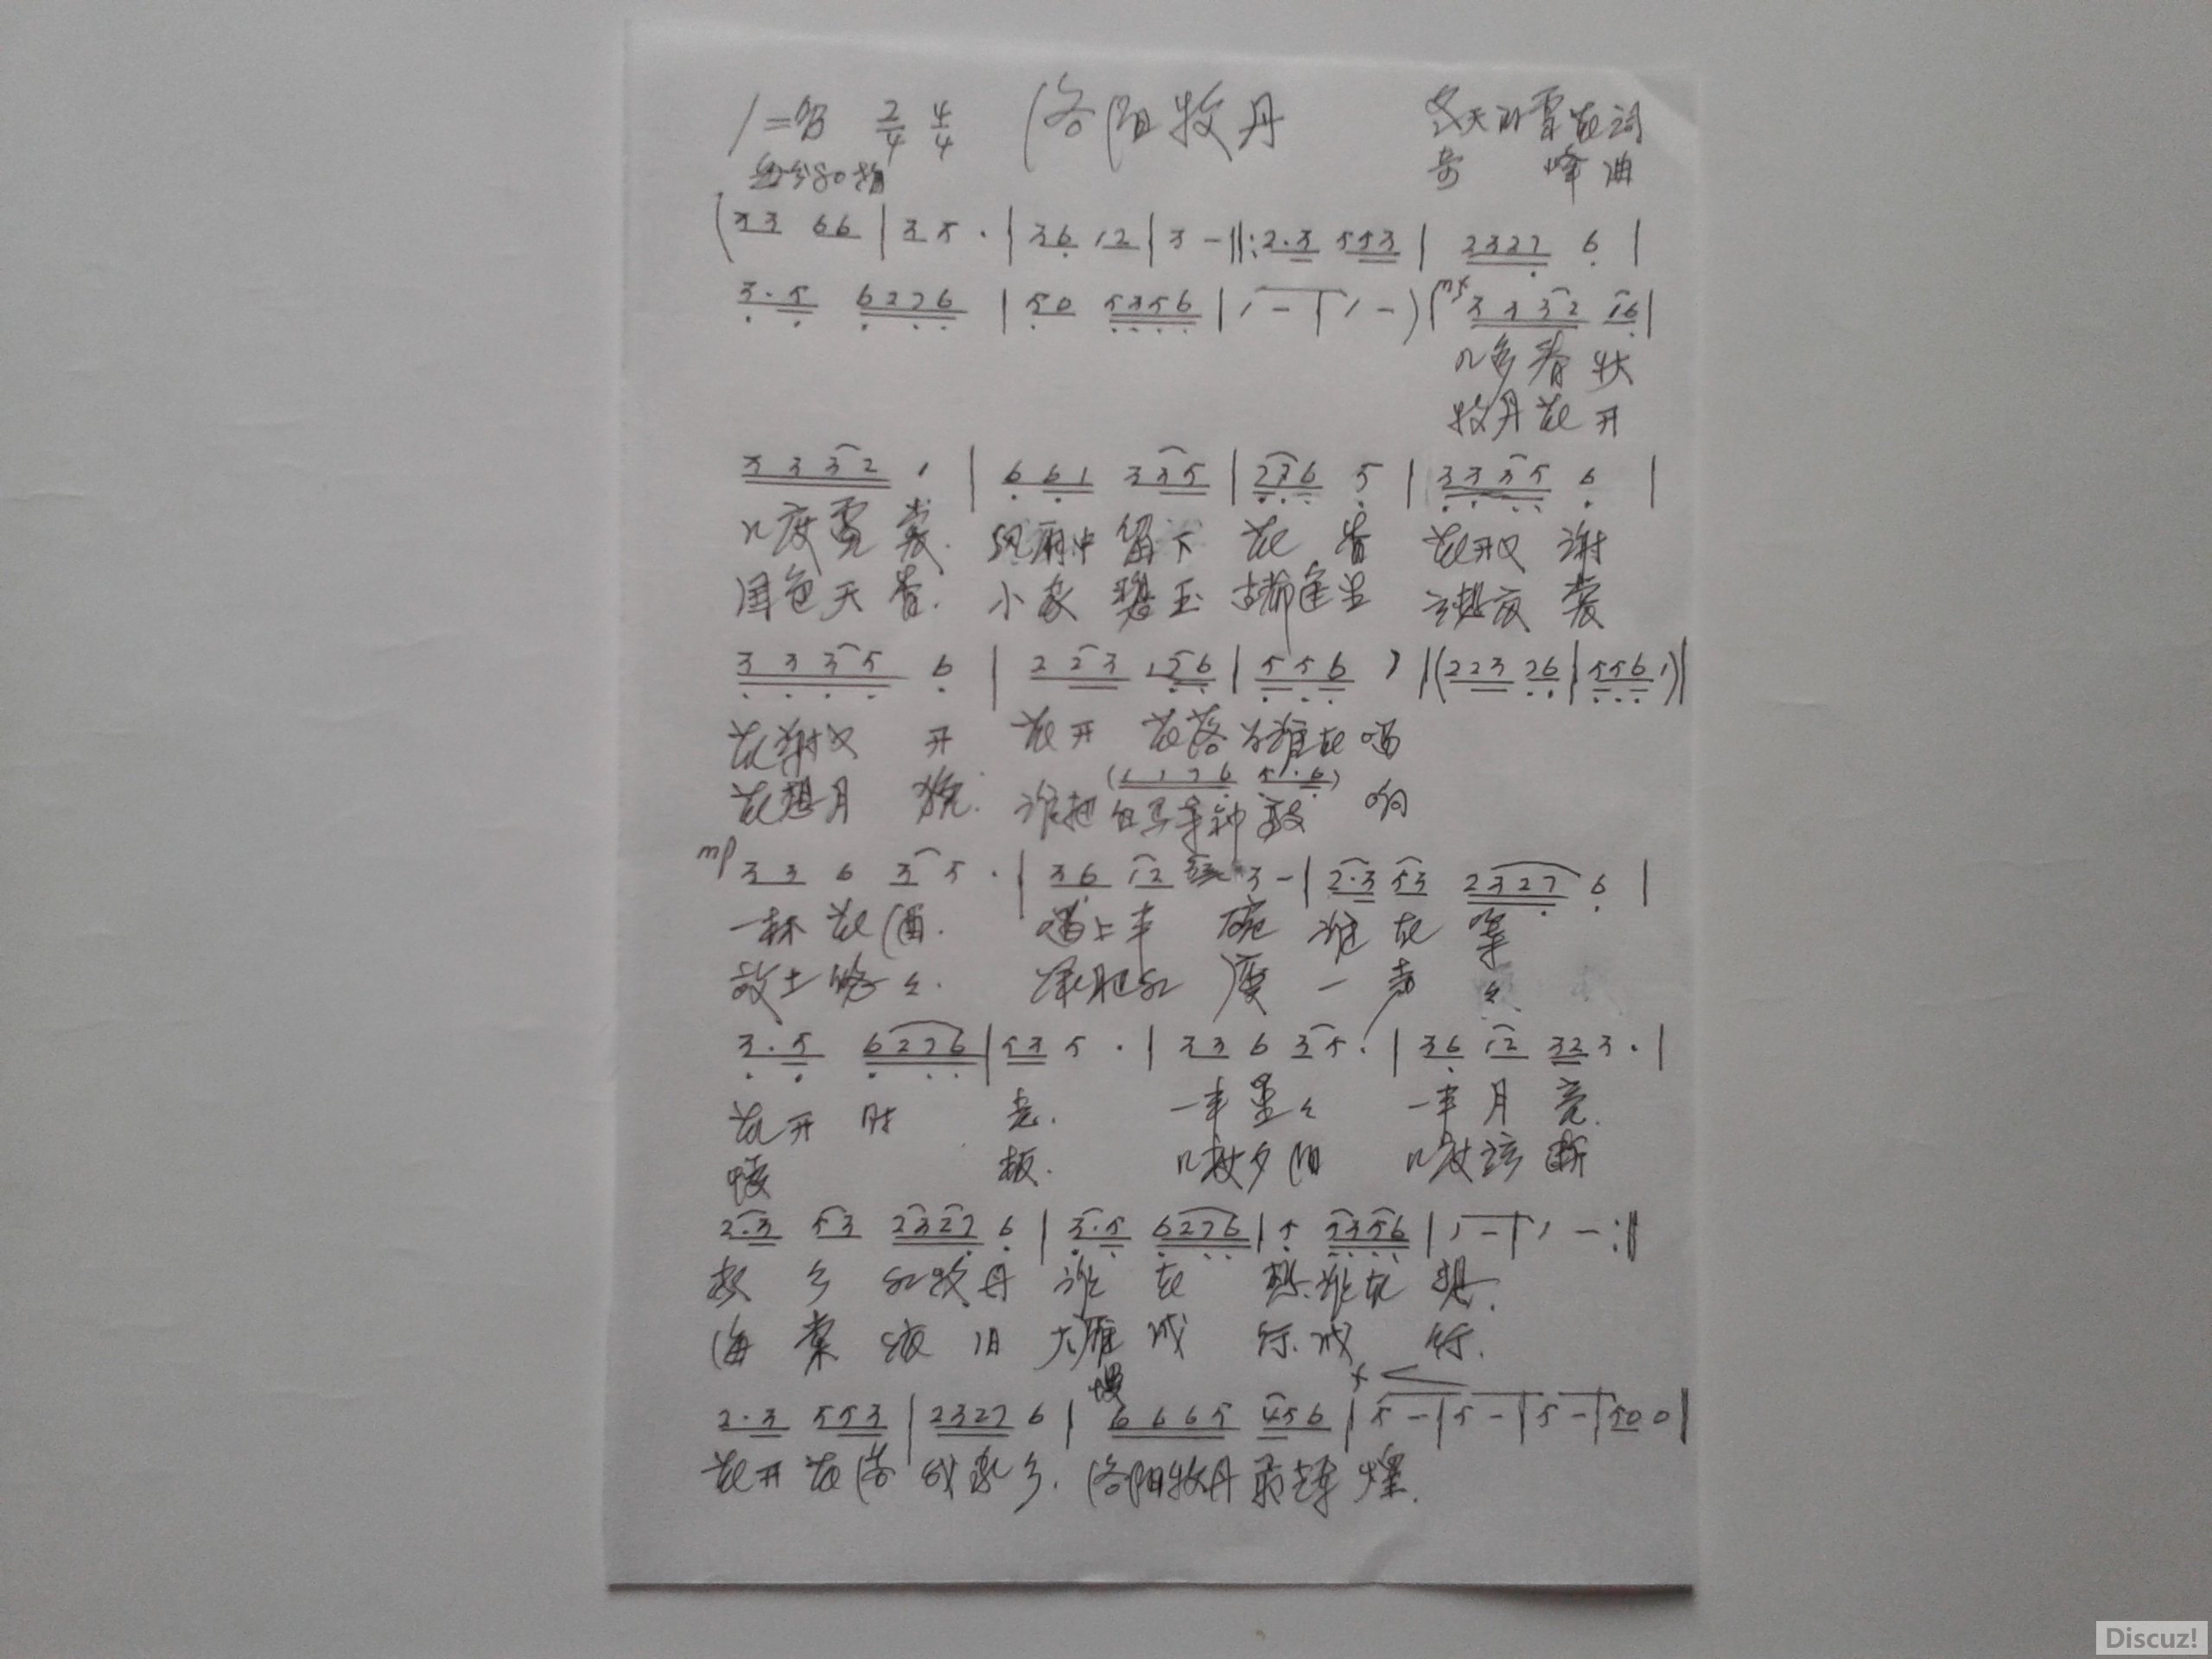 1=bB 2/4 4/4 洛阳牡丹 冬天的雪花词
每分80拍 奇峰曲
(33 66 | 35 · | 36 12 | 3 - ||: 2·3 553 | 2327 6 |
3·5 6276 | 50 5356 | 1 - | 1 - ) | mf 3332 16 |
几多春秋
牡丹花开
3332 1 | 661 335 | 276 5 | 3335 6 |
几度霓裳. 风雨中留下花香 花开又谢
国色天香. 小家碧玉古都 云想衣裳
3335 6 | 223 156 | 556 1 | (223 76 | 556 1) |
花谢又开 花开花落为谁在唱
花想月貌. (1176 5·6)
谁把白马寺钟敲响
mp 33 6 35 · | 36 12 3 - | 2·3 53 2327 6 |
一杯花酒. 遇上半碗 谁在等
故土悠々. 绿肥红瘦 一声々
3·5 6276 | 53 5 · | 33 6 35 · | 36 12 32 3 · |
花开时 一半星々 一半月亮.
慢板. 几枚夕阳 几枝
2·3 53 2327 6 | 3·5 6276 | 5 5356 | 1 - | 1 - :||
故乡红牡丹 谁在想.谁在想.
海棠依旧 大雁成行.成行.
慢 f
2·3 553 | 2327 6 | 6665 456 | 5 - | 5 - | 5 - | 50 0 |
花开在洛 家乡. 洛阳牡丹最辉煌.
Discuz!